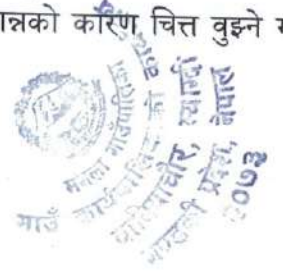 ान्नको कारण चित्त वुझ्ने
मंगला गाउँपालिका
गाउँ कार्यपालिकाको कार्यालय
बाबियाचौर, म्याग्दी
गण्डकी प्रदेश, नेपाल
२०७३